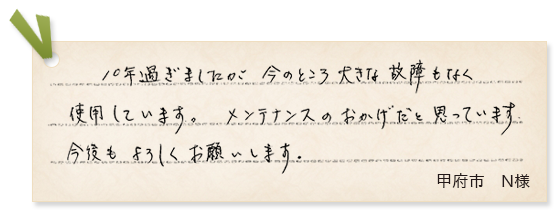 10年過ぎましたが 今のところ 大きな 故障もなく
使用しています。 メンテナンスの おかげだと 思っています.
今後も よろしく お願いします。
甲府市　N様